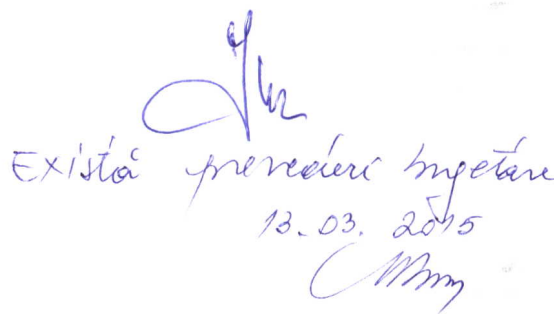 Există prevederi bugetare
13.03. 2015